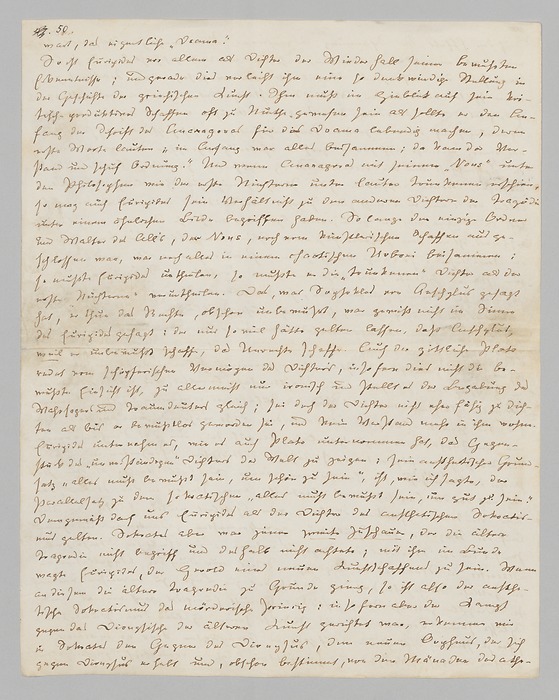 50.
ward, das eigentliche „Drama“.
So ist Euripides vor allem als Dichter der Wiederhall seiner bewußten
Erkenntnisse; und gerade dies verleiht ihm eine so denkwürdige Stellung in
der Geschichte der griechischen Kunst. Ihm muß im Hinblick auf sein kri-
tisch-produktives Schaffen oft zu Muthe gewesen sein als sollte er den An-
fang der Schrift des Anaxagoras für das Drama lebendig machen, deren
erste Worte lauten „im Anfang war alles beisammen; da kam der Ver-
stand und schuf Ordnung.“ Und wenn Anaxagoras mit seinem „Nous“ unter
den Philosophen wie der erste Nüchterne unter lauter Trunkenen erschien,
so mag auch Euripides sein Verhältniß zu den anderen Dichtern der Tragödie
unter einem ähnlichen Bilde begriffen haben. So lange der einzige Ordner
und Walter des Alls, der Nous, noch vom künstlerischen Schaffen ausge-
schlossen war, war noch alles in einem chaotischen Urbrei beisammen;
so mußte Euripides urtheilen, so mußte er die „trunkenen“ Dichter als der
erste „Nüchterne“ verurtheilen. Das, was Sophokles von Aeschylus gesagt
hat, er thue das Rechte, obschon unbewußt, war gewiß nicht im Sinne
des Euripides gesagt: der nur so viel hätte gelten lassen, daß Aeschylus,
weil er unbewußt schaffe, das Unrechte schaffe. Auch der göttliche Plato
redet vom schöpferischen Vermögen des Dichters, insofern dies nicht die be-
wußte Einsicht ist, zu allermeist nur ironisch und stellt es der Begabung des
Wahrsagers und Traumdeuters gleich; sei doch der Dichter nicht eher fähig zu dich-
ten als bis er bewußtlos geworden sei, und kein Verstand mehr in ihm wohne.
Euripides unternahm es, wie es auch Plato unternommen hat, das Gegen-
stück des „unverständigen“ Dichters der Welt zu zeigen; sein aesthetischer Grund-
satz „alles muß bewußt sein, um schön zu sein“, ist, wie ich sagte, der
Parallelsatz zu dem sokratischen „alles muß bewußt sein, um gut zu sein.“
Demgemäß darf uns Euripides als der Dichter des aesthetischen Sokratis-
mus gelten. Sokrates aber war jener zweite Zuschauer, der die ältere
Tragoedie nicht begriff und deshalb nicht achtete; mit ihm im Bunde
wagte Euripides, der Herold eines neuen Kunstschaffens zu sein. Wenn
an diesem die ältere Tragoedie zu Grunde ging, so ist also der aesthe-
tische Sokratismus das mörderische Princip: insofern aber der Kampf
gegen das Dionysische der älteren Kunst gerichtet war, erkennen wir
in Sokrates den Gegner des Dionysus, den neuen Orpheus, der sich
gegen Dionysus erhebt und, obschon bestimmt, von den Mänaden des athe-